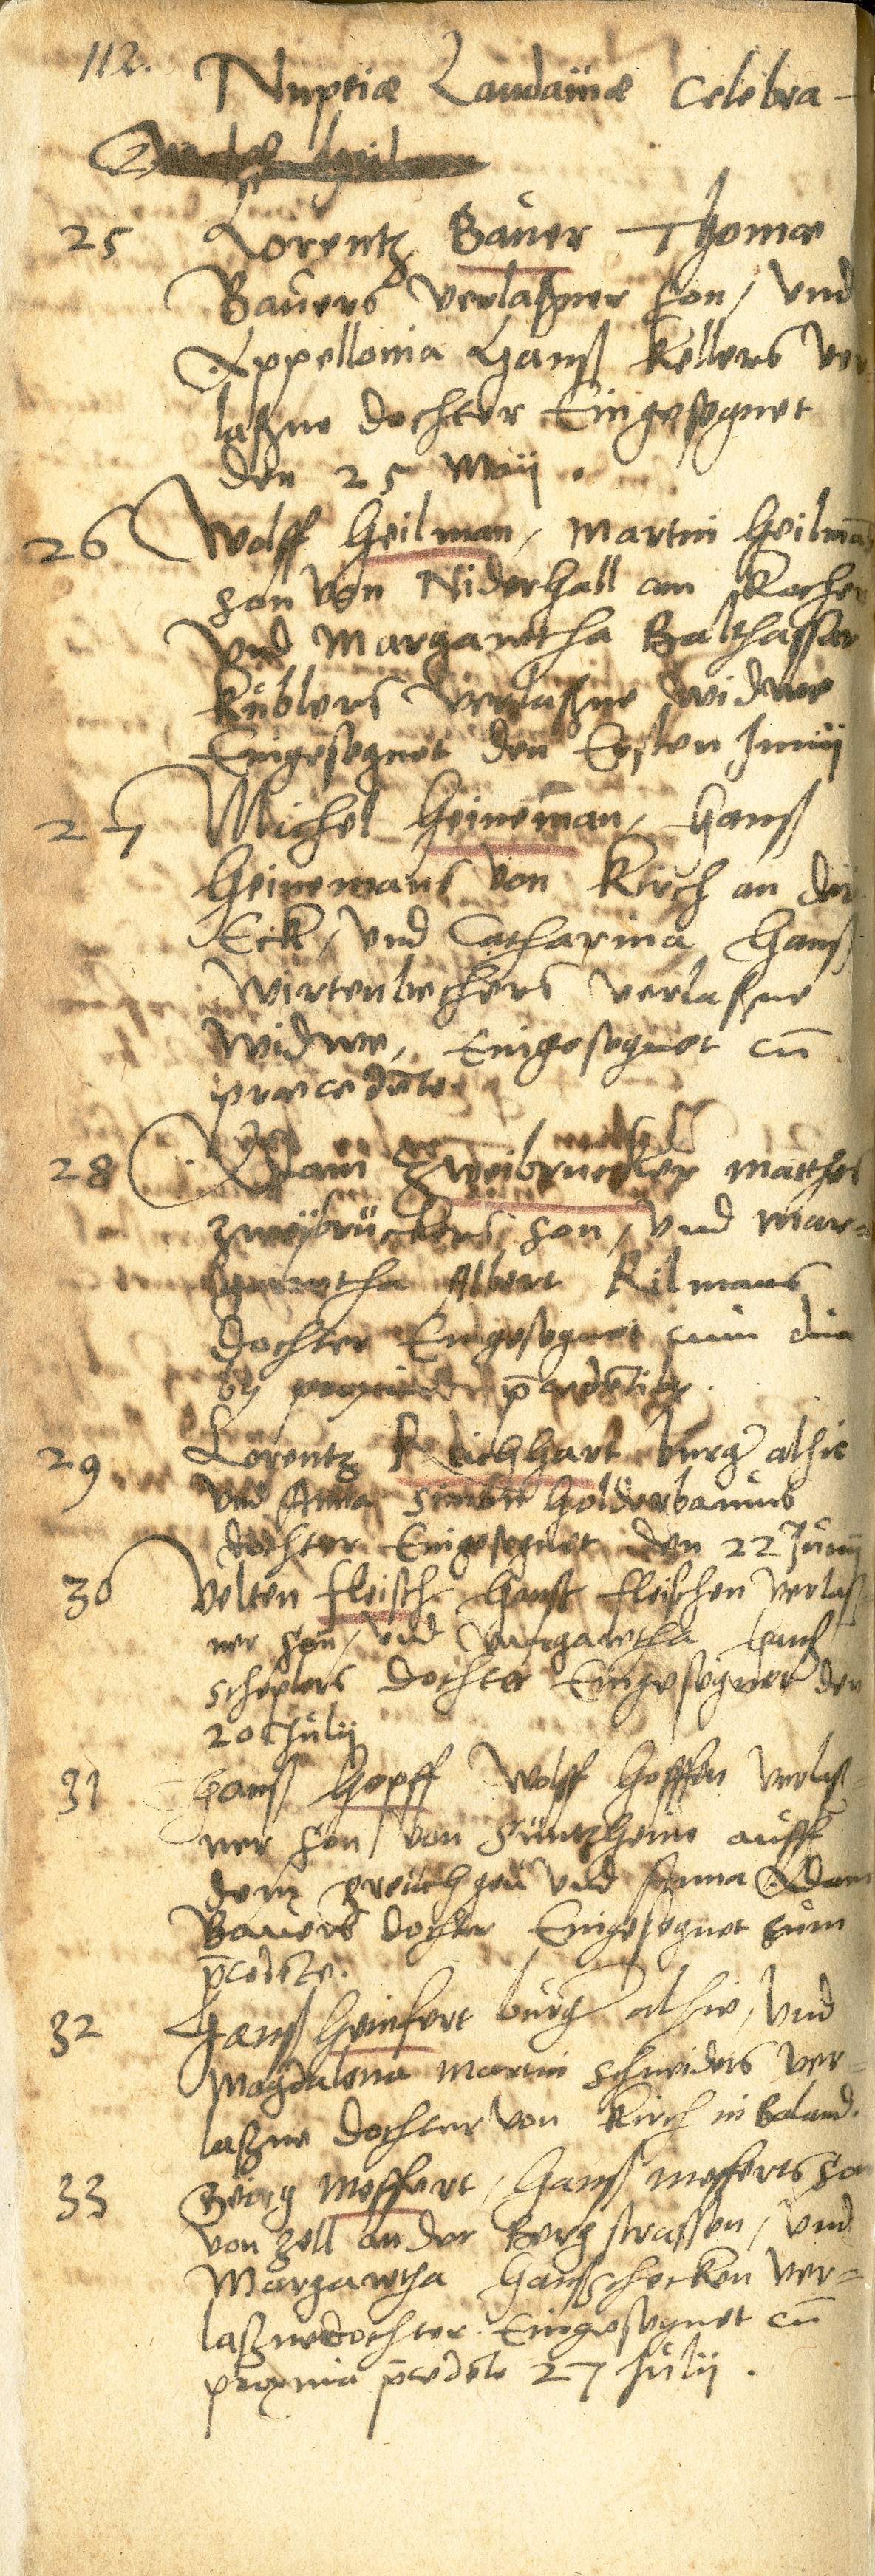 112.
Nuptiæ Laudainæ Celebra-
25 Lorentz Bauer Thomæ
Bauers verlaßner son, und
Appellonia Hanß Kellers ver-
laßne dochter Eingesegnet
den 25 Maij.
26 Wolff Heilman, Martin Heilmā
son von Niderhall am Kocher
und Margaretha Balthassar
Küblers verlaßne widwe
Eingesegnet den Ersten Junij
27 Michel Heineman, Hanß
Heinemans von Kirch an der
Eck, und Catharina Hanß
Wirtenbechers verlaßne
widwe, Eingesegnet cū
præcedēte.
28 Adam Zweibrucker Matthes
Zweÿbrückers son, und Mar-
garetha Albert Kilmans
dochter Eingesegnet cum
p̄cedētib.
29 Lorentz Reichhart burger alhie
und Anna Simon Holderbaums
dochter Eingesegnet den 22 Junij
30 Velten Fleisch Hanß Fleischen verlaß
ner son, und Margaretha Hanß
scheplers dochter Eingesegnet den
20 Julij
31 Hanß Hopff Wolff Hopffen verlaß-
ner son von Süntzheim auff
dem greichgeu und Anna Adam
Bauers dochter Eingesegnet cum
p̄cedēte.
32 Hanß Heinfert burger alhie, und
Magdalena Martin Schneiders ver-
laßne dochter von Kirch in Boland.
33 Georg Meffert, Hanß Mefferts son
von Zell an der Bergstrassen, und
Margaretha Hanß schecken ver-
laßne dochter Eingesegnet cū
proxima p̄cedēte 27 Julij.